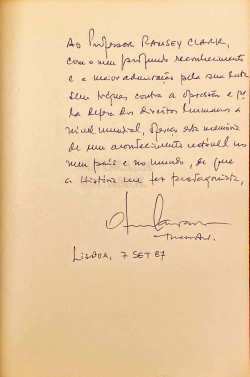 Ao Professor RAMSEY CLARK,
com o meu profundo reconhecimento
e a maior admiração pela sua luta
sem tréguas contra a opressão e pela
defesa dos direitos humanos a
nível mundial, ofereço esta memória
de um acontecimento notável no
meu país e no mundo, de que
a História me fez protagonista,
LISBOA, 7 SET 87